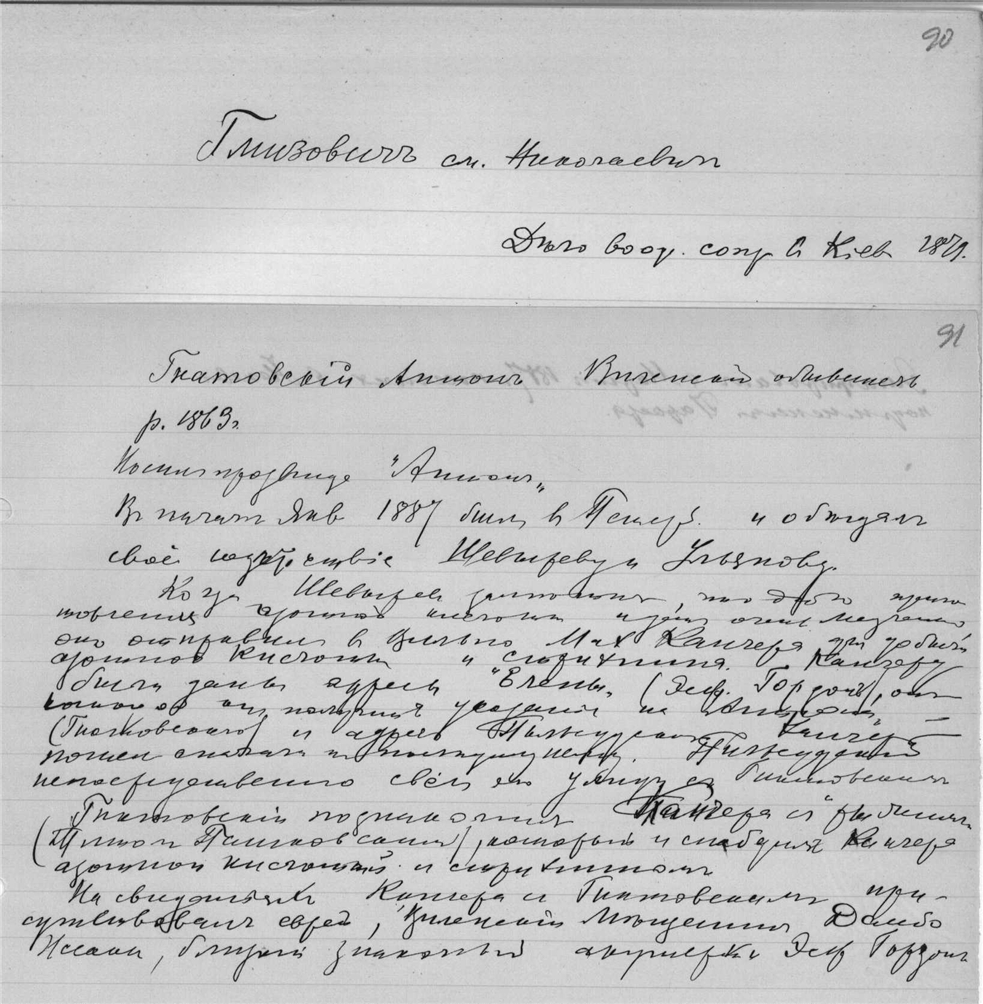 90
Гмизовичъ см. Николаевич
Дѣло воор. сопр в Кіев 1879.
91
Гнатовскій Антонъ Виленскій обыватель
р. 1863 г.
Носил прозвище "Антон"
В начал Янв 1887 был в Петерб. и обещал
своё содѣйствіе Шевыреву и Ульянову.
Когда Шевырев что дѣло приго
товления азотной кислоты идет очень медленно
он отправил в Вильно Мих Канчера для добычи
азотной кислоты и стрихнина. Канчеру
были даны адреса "Елены" (Эсф. Гордон), от
которой он получит указания на "Антона"
(Гнатовского) и адрес Пилсудского. Канчер
пошел сначала к последнему. Пилсудский
непосредственно свел его с Гнатовским
Гнатовскій познакомил Канчера с "рыжим"
(Титом Пашковским), который и снабдил Канчера
азотной кислотой и стрихнином
На свиданиях Канчера с Гнатовским при-
сутствовал еврей, Виленскій мѣщанин Дембо
Исаак, близкий знакомый акушерки Эсф Гордон